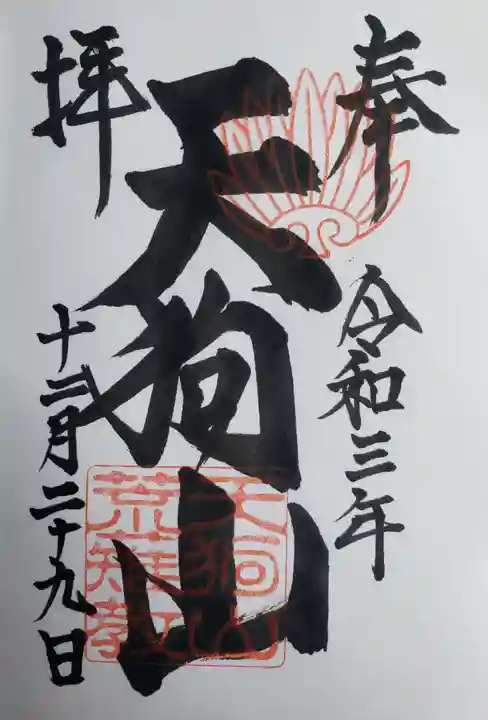 奉拝
令和三年
天狗山
十二月二十九日
天狗山